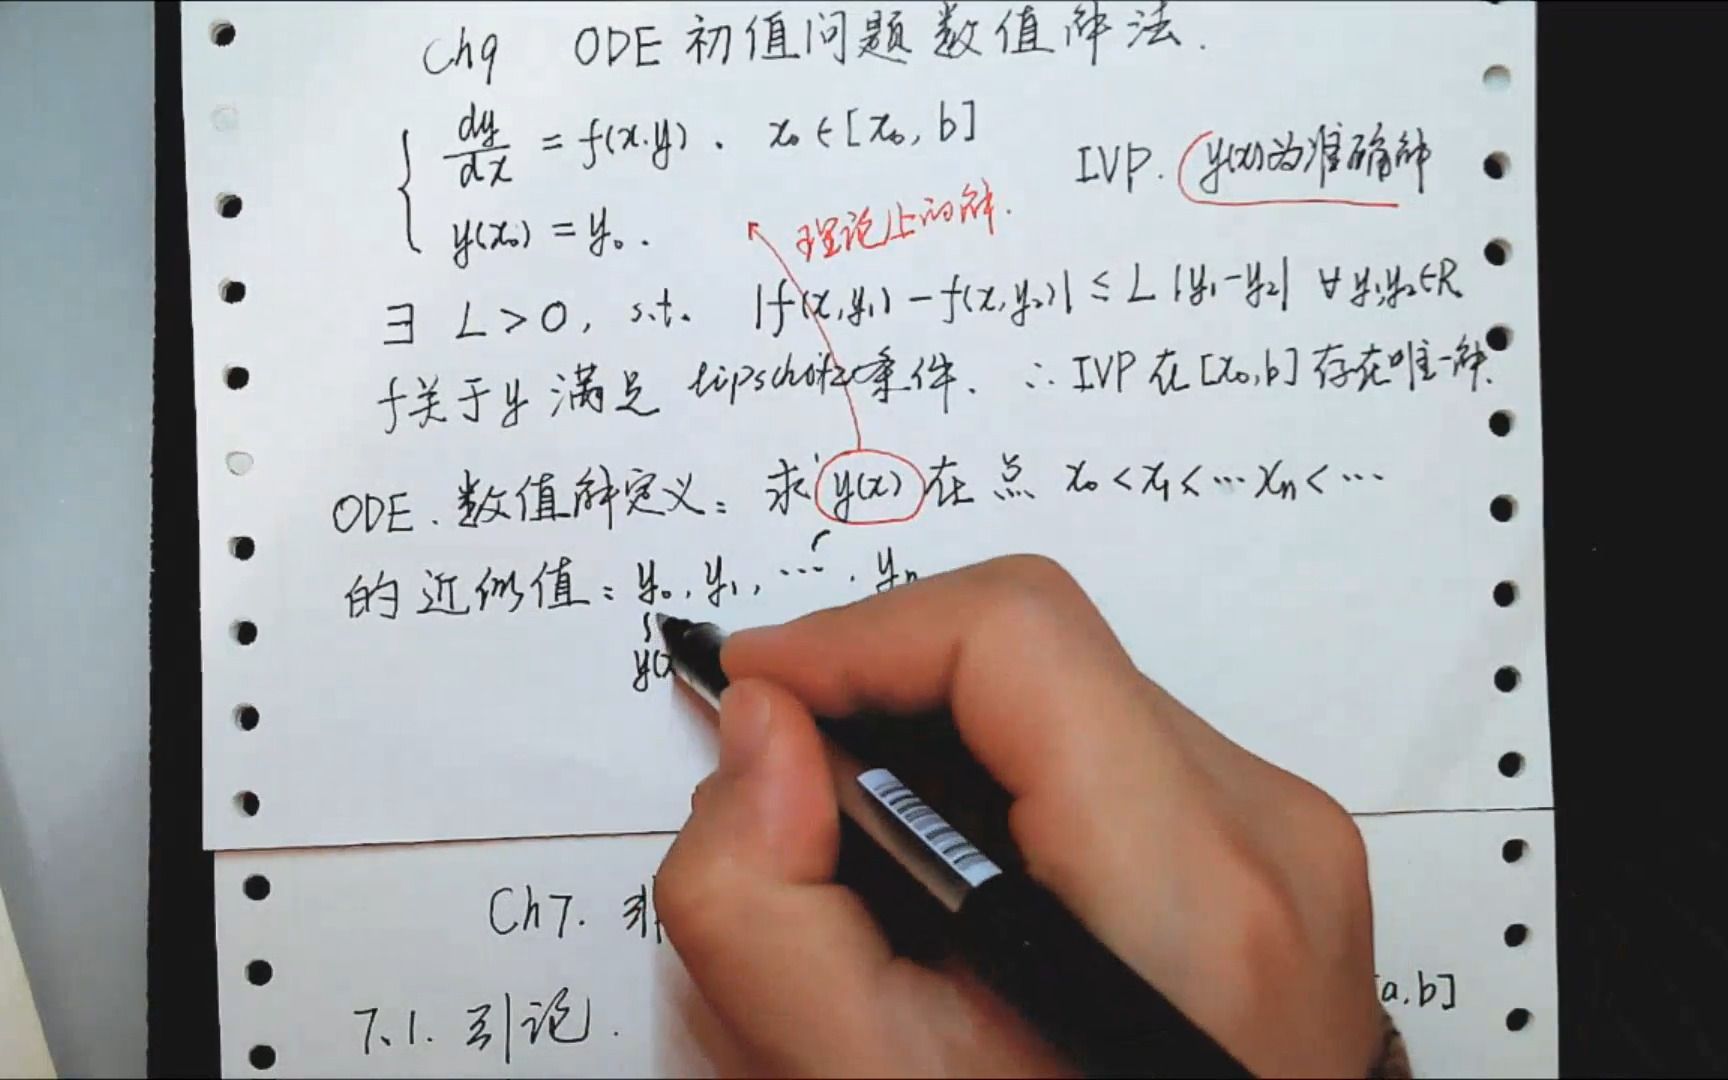 Ch9 ODE 初值问题数值解法.
dy/dx = f(x.y). x₀∈[x₀, b]
IVP. y(x)为准确解
y(x₀) = y₀.
理论上的解.
∃ L>0, s.t. |f(x,y₁) - f(x,y₂)| ≤ L |y₁-y₂| ∀ y₁,y₂∈R
f关于y 满足 lipschitz条件. ∴ IVP 在 [x₀,b] 存在唯一解.
ODE. 数值解定义: 求 y(x) 在点 x₀ < x₁ < … xₙ < …
的近似值: y₀, y₁, …, yₙ
y(x
Ch7. 非
a,b]
7.1. 引论.